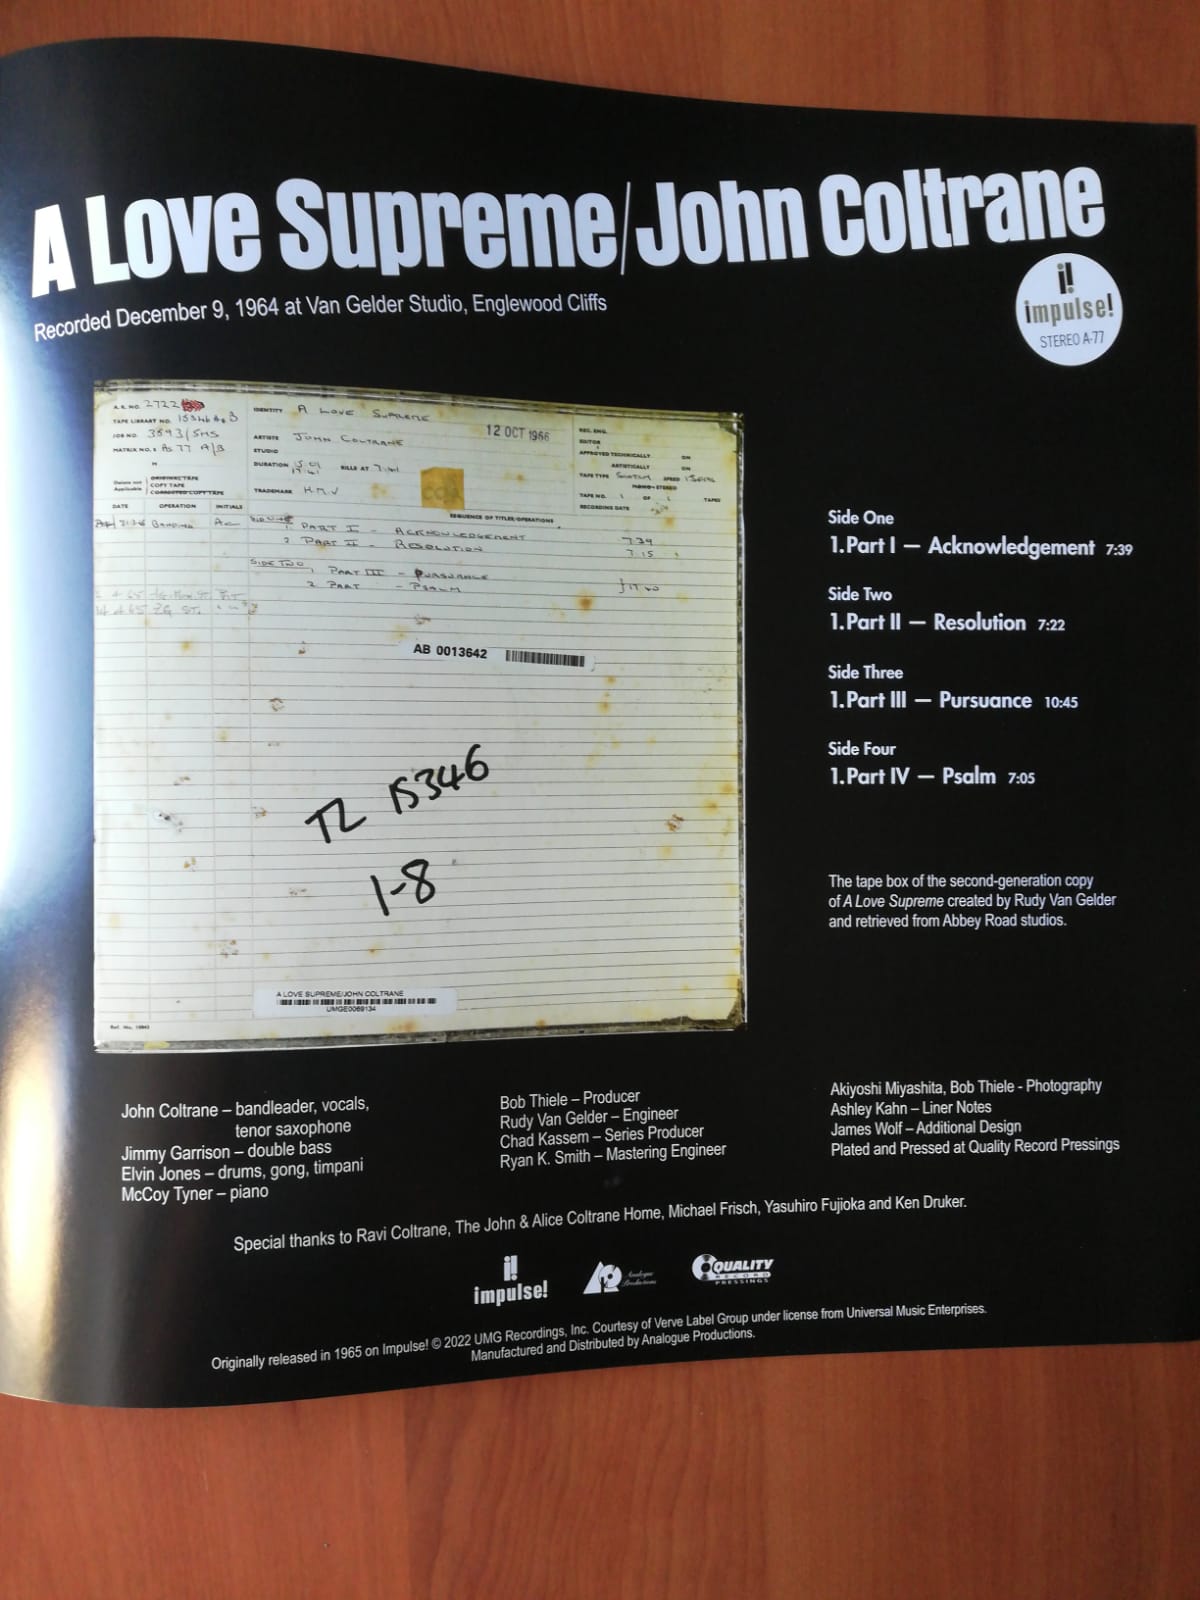 A Love Supreme/John Coltrane
Recorded December 9, 1964 at Van Gelder Studio, Englewood Cliffs
impulse!
STEREO A-77
A.R. NO. 2722
TAPE LIBRARY NO. 15346
JOB NO. 3593/SMS
MATRIX NO.S AS 77 A/B
IDENTITY A LOVE SUPREME
12 OCT 1966
ARTISTE JOHN COLTRANE
STUDIO
DURATION
TRADEMARK H.M.V
REC. ENG.
EDITOR
APPROVED TECHNICALLY ON
ARTISTICALLY ON
TAPE TYPE SPEED
MONO-STEREO
TAPE NO. 1 OF 1 TAPES
RECORDING DATE
Delete not Applicable
ORIGINAL TAPE
COPY TAPE
CORRECTED COPY TAPE
DATE OPERATION INITIALS
SEQUENCE OF TITLES/OPERATIONS
BANDING
SIDE ONE
1 PART I - ACKNOWLEDGEMENT 7.39
2 PART II - RESOLUTION 7.15
SIDE TWO
1 PART III - PURSUANCE
2 PART - PSALM
AB 0013642
TL 15346
1-8
A LOVE SUPREME/JOHN COLTRANE
UMGE0069134
Side One
1.Part I — Acknowledgement 7:39
Side Two
1.Part II — Resolution 7:22
Side Three
1.Part III — Pursuance 10:45
Side Four
1.Part IV — Psalm 7:05
The tape box of the second-generation copy
of A Love Supreme created by Rudy Van Gelder
and retrieved from Abbey Road studios.
John Coltrane – bandleader, vocals,
tenor saxophone
Jimmy Garrison – double bass
Elvin Jones – drums, gong, timpani
McCoy Tyner – piano
Bob Thiele – Producer
Rudy Van Gelder – Engineer
Chad Kassem – Series Producer
Ryan K. Smith – Mastering Engineer
Akiyoshi Miyashita, Bob Thiele - Photography
Ashley Kahn – Liner Notes
James Wolf – Additional Design
Plated and Pressed at Quality Record Pressings
Special thanks to Ravi Coltrane, The John & Alice Coltrane Home, Michael Frisch, Yasuhiro Fujioka and Ken Druker.
impulse!
Analogue Productions
QUALITY
RECORD
PRESSINGS
Originally released in 1965 on Impulse! © 2022 UMG Recordings, Inc. Courtesy of Verve Label Group under license from Universal Music Enterprises.
Manufactured and Distributed by Analogue Productions.